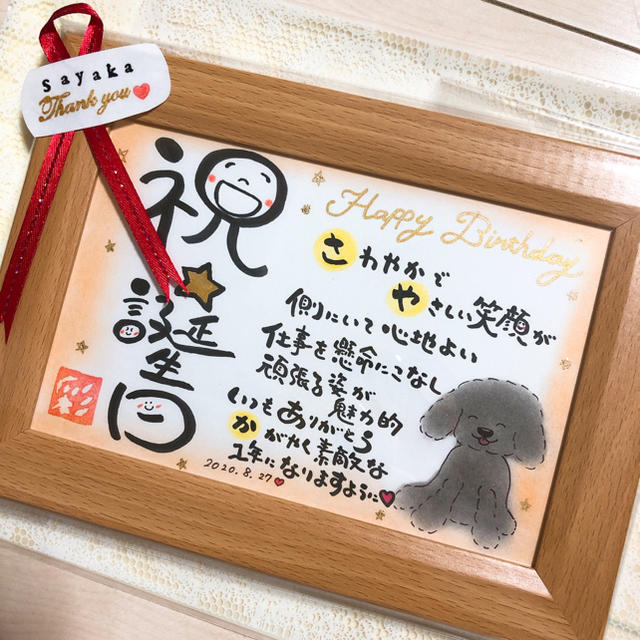 Sayaka
Thank you
祝
誕生日
Happy Birthday
さわやかで
やさしい笑顔が
側にいて心地よい
仕事を懸命にこなし
頑張る姿が魅力的
いつもありがとう
かがやく素敵な
1年になりますように
2020.8.27